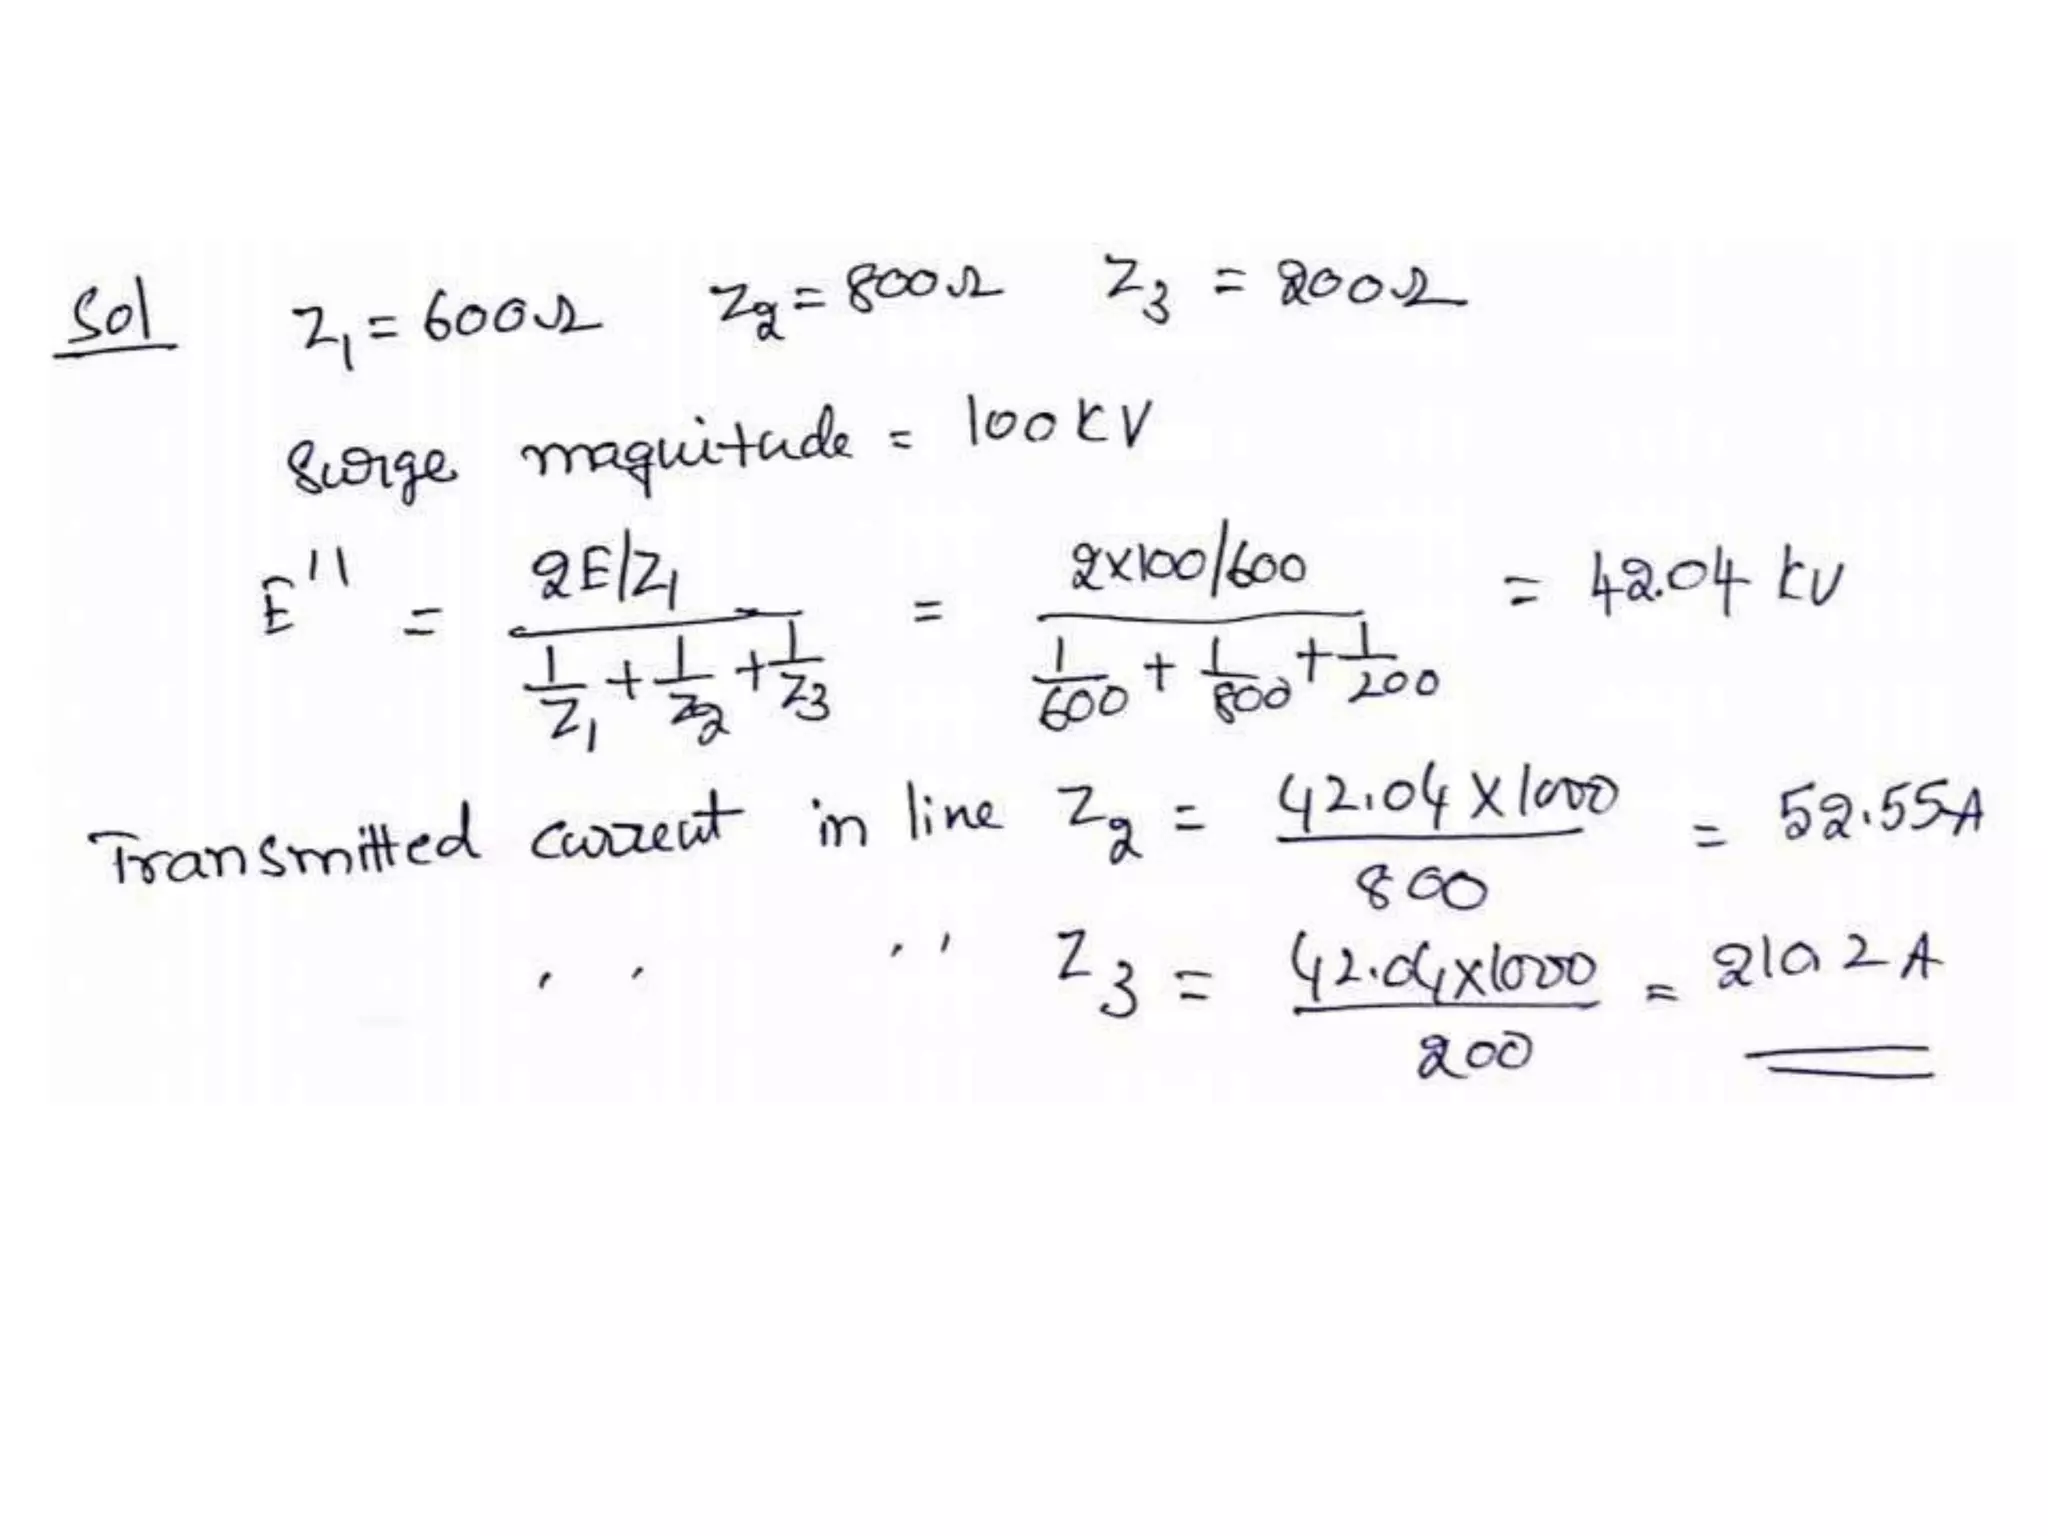 Sol Z₁ = 600Ω Z₂ = 800Ω Z₃ = 200Ω
Surge magnitude = 100 KV
E'' = (2E/Z₁) / (1/Z₁ + 1/Z₂ + 1/Z₃) = (2×100/600) / (1/600 + 1/800 + 1/200) = 42.04 kV
Transmitted current in line Z₂ = 42.04 × 1000 / 800 = 52.55A
, , , , Z₃ = 42.04×1000 / 200 = 210.2 A